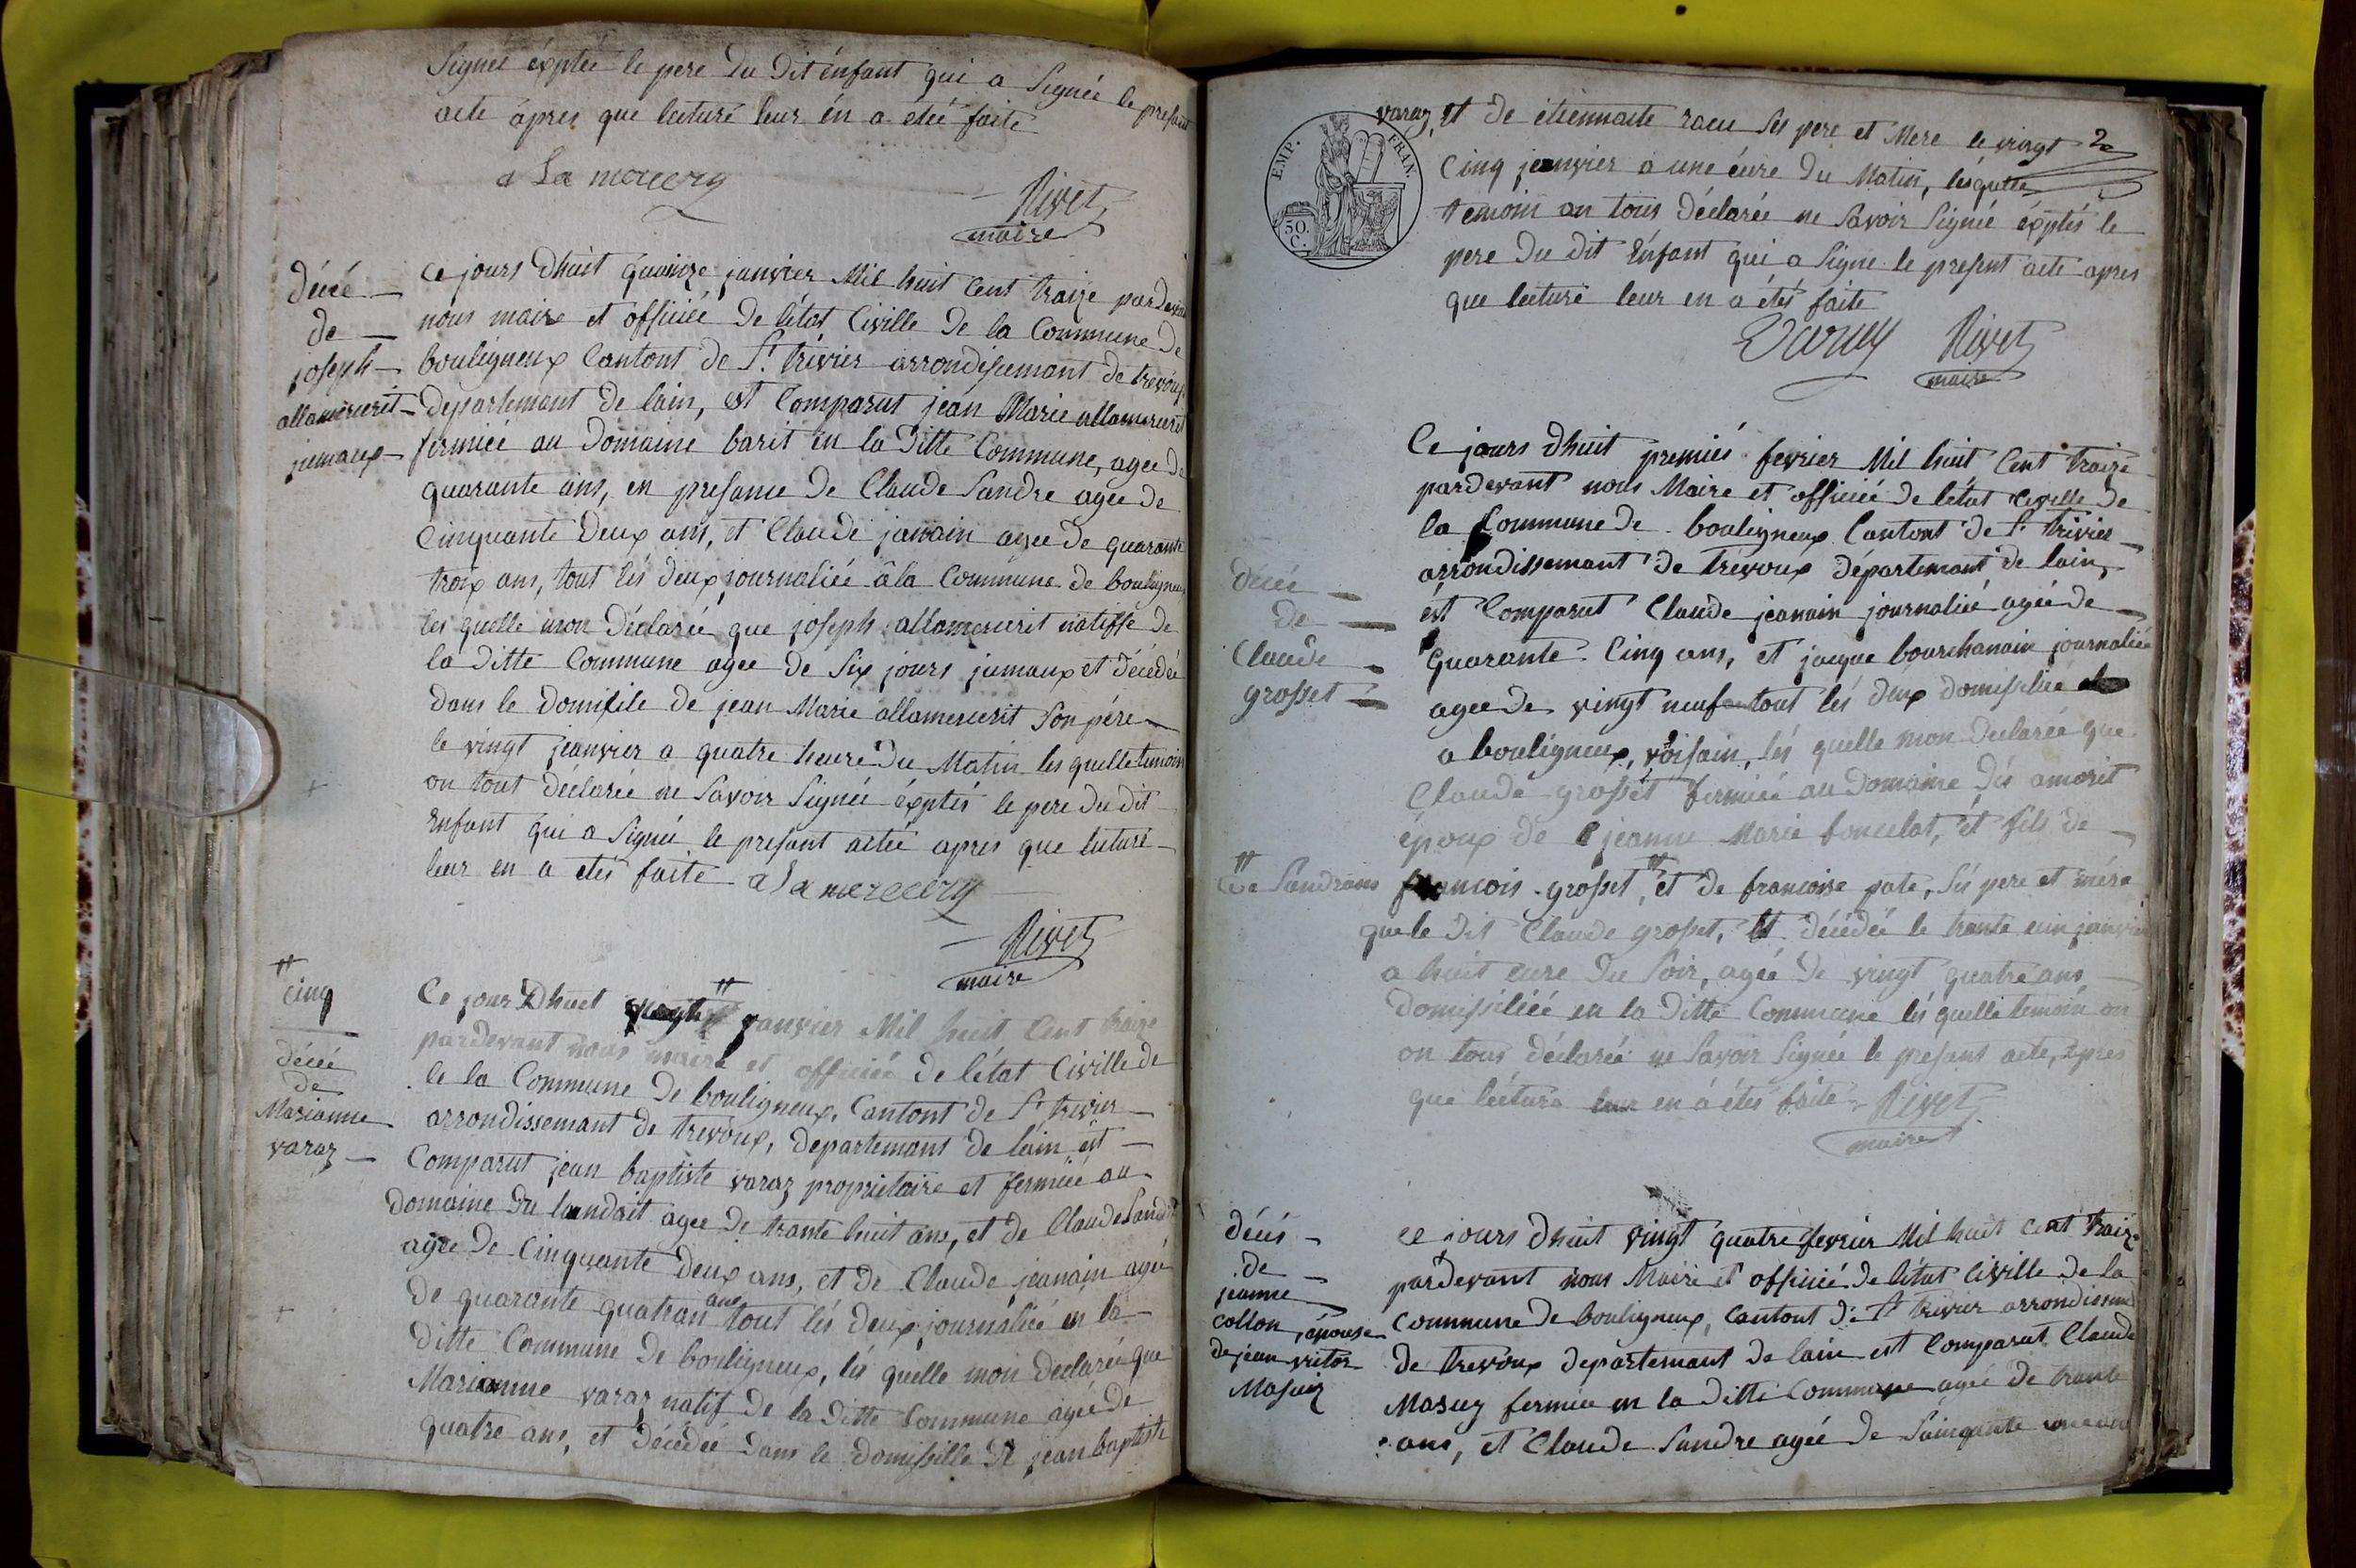 Signée éxptée le pere du Dit énfant qui a Signée le présant
acte âpres que lecturé leur én a etée faite
a La mercery
Rivet
maire
décé
de
joseph
allamercrit
jumaux
Ce jours Dhuit quainze janvier Mil huit Cent traize pardevant
nous maire et officiée De l'état Civille De la Commune De
bouligneux Cantont de St trivier arrondisemant de trevoux
departemant De lain, est Comparut jean Marie allamercrit
fermiée au Domaine barit en la Ditte Commune, agee De
quarante ans, en presance De Claude Sandre agee de
Cinquante Deux ans, et Claude janain agee De quarante
troix ans, tout lés deux journaliée â la Commune de bouligneux
les quelle mon Déclarée que joseph allamercrit natiffe de
la Ditte Commune agee de Six jours jumaux et décédée
dans le Domisile de jean Marie allamercrit Son pére
le vingt jeanvier a quatre heure Du Matin les quelle temoin
on tout déclarée ne Savoir Signée éxptés le pere du dit
Enfant qui a Signée le presant actée apres que lecture
leur en a etés faite a La mercery
Rivet
maire
cinq
Ce jour Dhuet janvier Mil huit Cent traize
pardevant nous maire et officiée De l'état Civille de
décée
de
Marianne
varaz
le la Commune De bouligneux, Cantont de St trivier
arrondissemant de trevoux, departemans De lain est
Comparut jean baptiste varaz proprietaire et fermiée au
Domaine Du landait agee De trante huit ans, et de Claude Sandre
agée De Cinquante deux ans, et de Claude jeanain agée
De quarante quatran ans tout lés deux journaliée en la
Ditte Commune De bouligneux, lés quelle mon declarée que
Marianne varaz natif de la Ditte Commune agée de
quatre ans, et Décédée Dans le Domissille De jean baptiste
2
EMP. FRAN.
50.
C.
varaz, et De étiennaite racu Ses pere et Mere le vingt
Cinq jeanvier a une éure Du Matin, les quelle
temoin on tous Déclarée ne Savoir Signée éxptés le
pere Du dit Enfant qui a Signe le present acte apres
que lecturé leur en a étés faite
Varaz Rivet
maire
Ce jours Dhuit premiés fevrier Mil huit Cent traize
pardevant nous Maire et officiée de l'état Civille De
la Commune de bouligneux Cantont de St trivier
arrondissemant De trévoux département de lain,
décés
de
Claude
grosset
ést Comparut Claude jeanain journaliée agée de
quarante Cinq ans, et jacque bourchanain journaliée
agee de vingt neuf tout lés deux domissiliée
a bouligneux, voisain, lés quelle mon Declarée que
Claude grosset fermiée au Domaine dés amorit
époux de jeanne Marie boncelat, ét fils de
de Sandrans
francois grosset, et de francoise pate, Sés pere et mére
que le Dit Claude grosset, Et décédée le trante ein janvier
a huit eure Du Soir, agée De vingt quatre ans
Domissiliéé en la Ditte Commune lés quelle temoin on
on tous déclarée ne Savoir Signée le présans acte, apres
que lécture leur en â étés faite Rivet
maire
décés
de
jeanne
collon, épouse
de jean vritor
Masuiz
ce jours Dhuit vingt quatre fevrier Mil huit cent traize
pardevant nous Maire et officiée de létat Civille De la
Commune de bouligneux, Cantont de St trivier arrondissem
De trevoux departemant De lain est Comparut Claude
Masuy fermiée en la Ditte Commune agée De trante
ans, et Claude Sandre agée De Sainquante